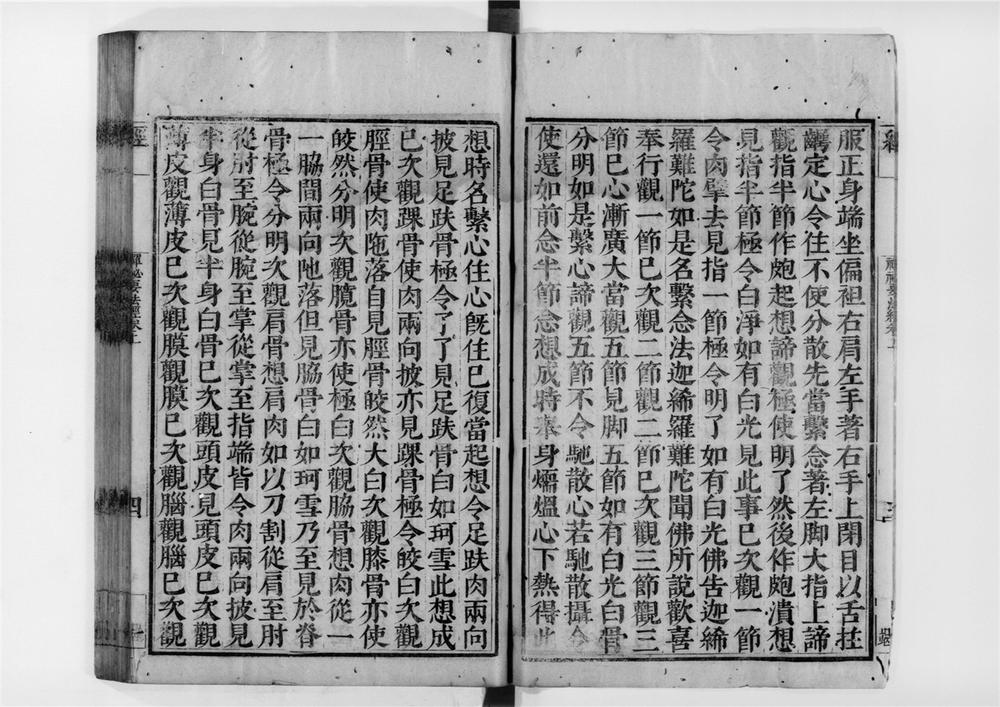 服正身端坐偏袒右肩左手著右手上閉目以舌拄
齶定心令住不使分散先當繫念著左脚大指上諦
觀指半節作皰起想諦觀極使明了然後作皰潰想
見指半節極令白淨如有白光見此事已次觀一節
令肉擘去見指一節極令明了如有白光佛告迦絺
羅難陀如是名繫念法迦絺羅難陀聞佛所說歡喜
奉行觀一節已次觀二節觀二節已次觀三節觀三
節已心漸廣大當觀五節見脚五節如有白光白骨
分明如是繫心諦觀五節不令馳散心若馳散攝令
使還如前念半節念想成時舉身煖熅心下熱得此
想時名繫心住心旣住已復當起想令足趺肉兩向
披見足趺骨極令了了見足趺骨白如珂雪此想成
已次觀踝骨使肉兩向披亦見踝骨極令皎白次觀
脛骨使肉陁落自見脛骨皎然大白次觀膝骨亦使
皎然分明次觀臗骨亦使極白次觀脇骨想肉從一
一脇間兩向陁落但見脇骨白如珂雪乃至見於脊
骨極令分明次觀肩骨想肩肉如以刀割從肩至肘
從肘至腕從腕至掌從掌至指端皆令肉兩向披見
半身白骨見半身白骨已次觀頭皮見頭皮已次觀
薄皮觀薄皮已次觀膜觀膜已次觀腦觀腦已次觀
經
禪秘要法經卷上
三
經
禪秘要法經卷上
四